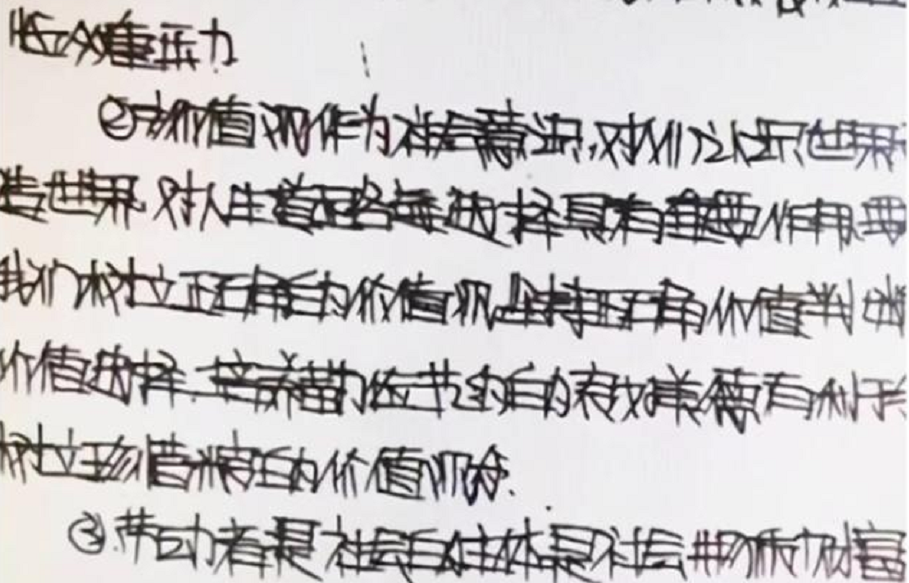 众重压力
②价值观作为社会意识,对人们认识世界
造世界,对人生道路的选择具有重要作用,要
我们树立正确的价值观,坚持正确价值判断
价值选择.培养勤俭节约的美德有利于
树立珍惜粮的价值观念.
③劳动者是社会的主体是社会物质财富